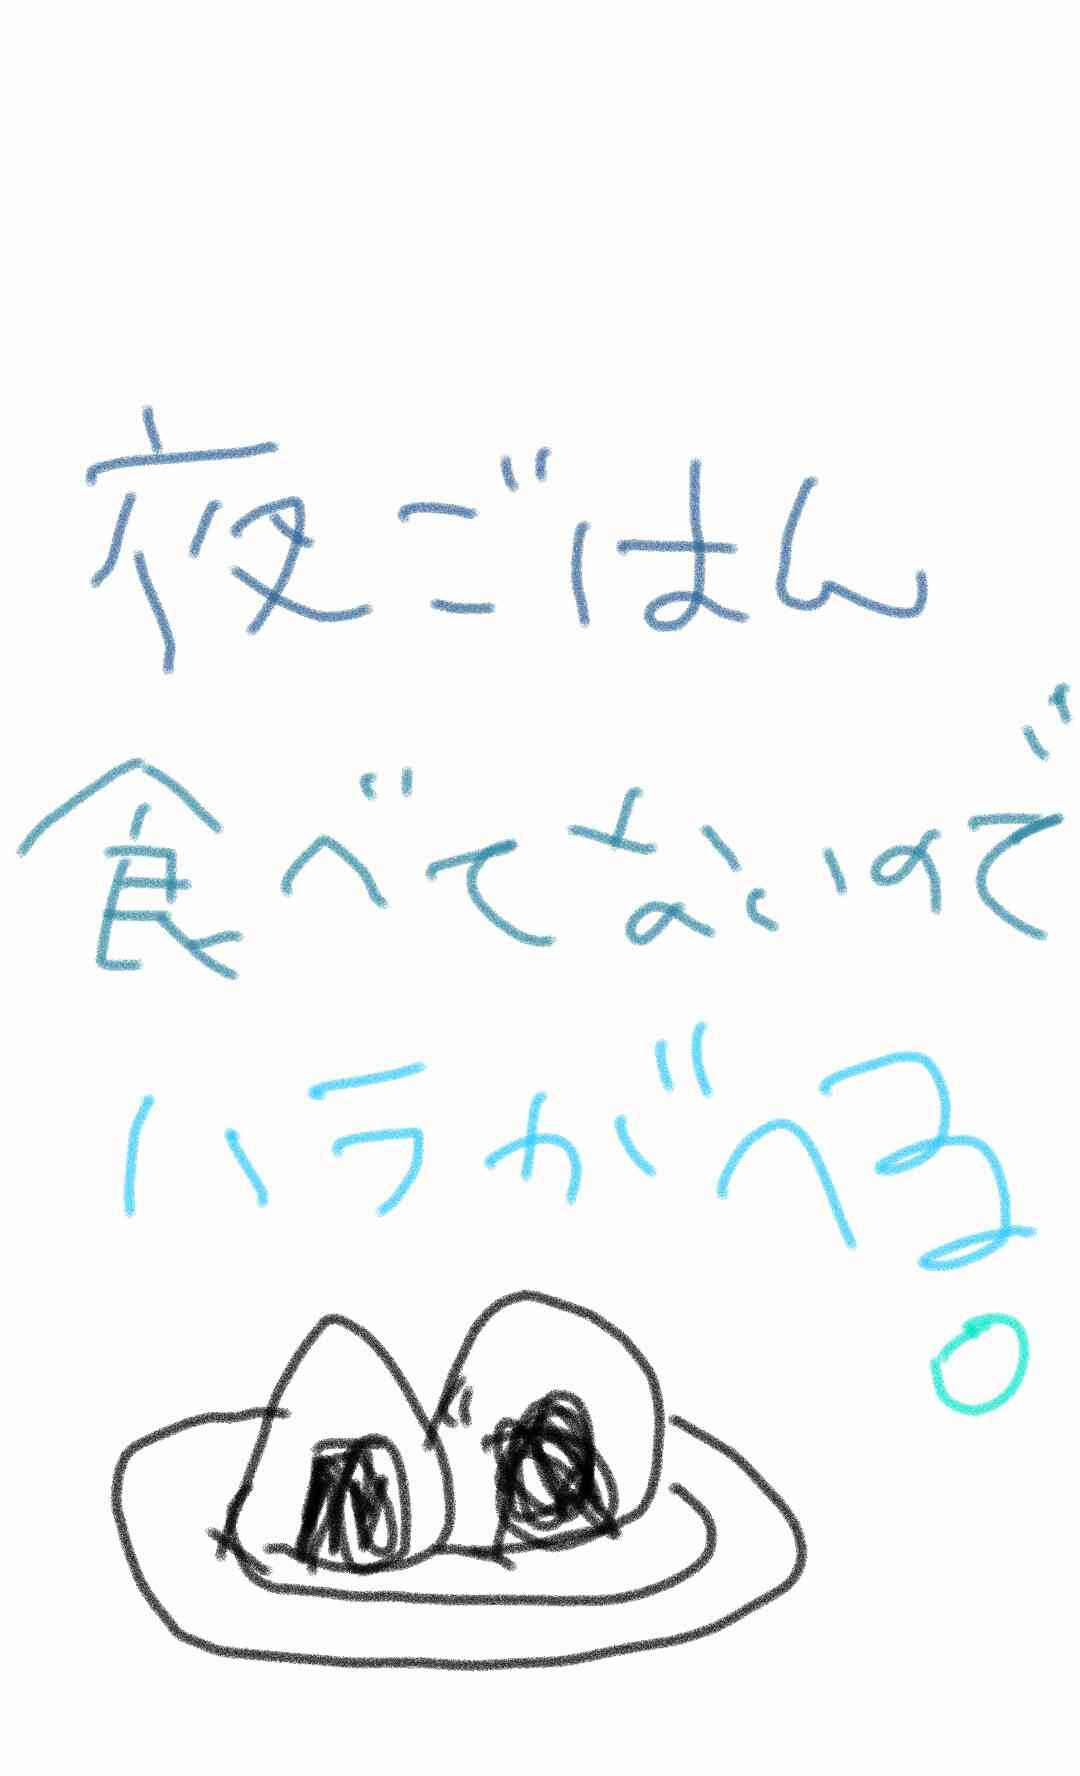 夜ごはん
食べてないので
ハラがへる。